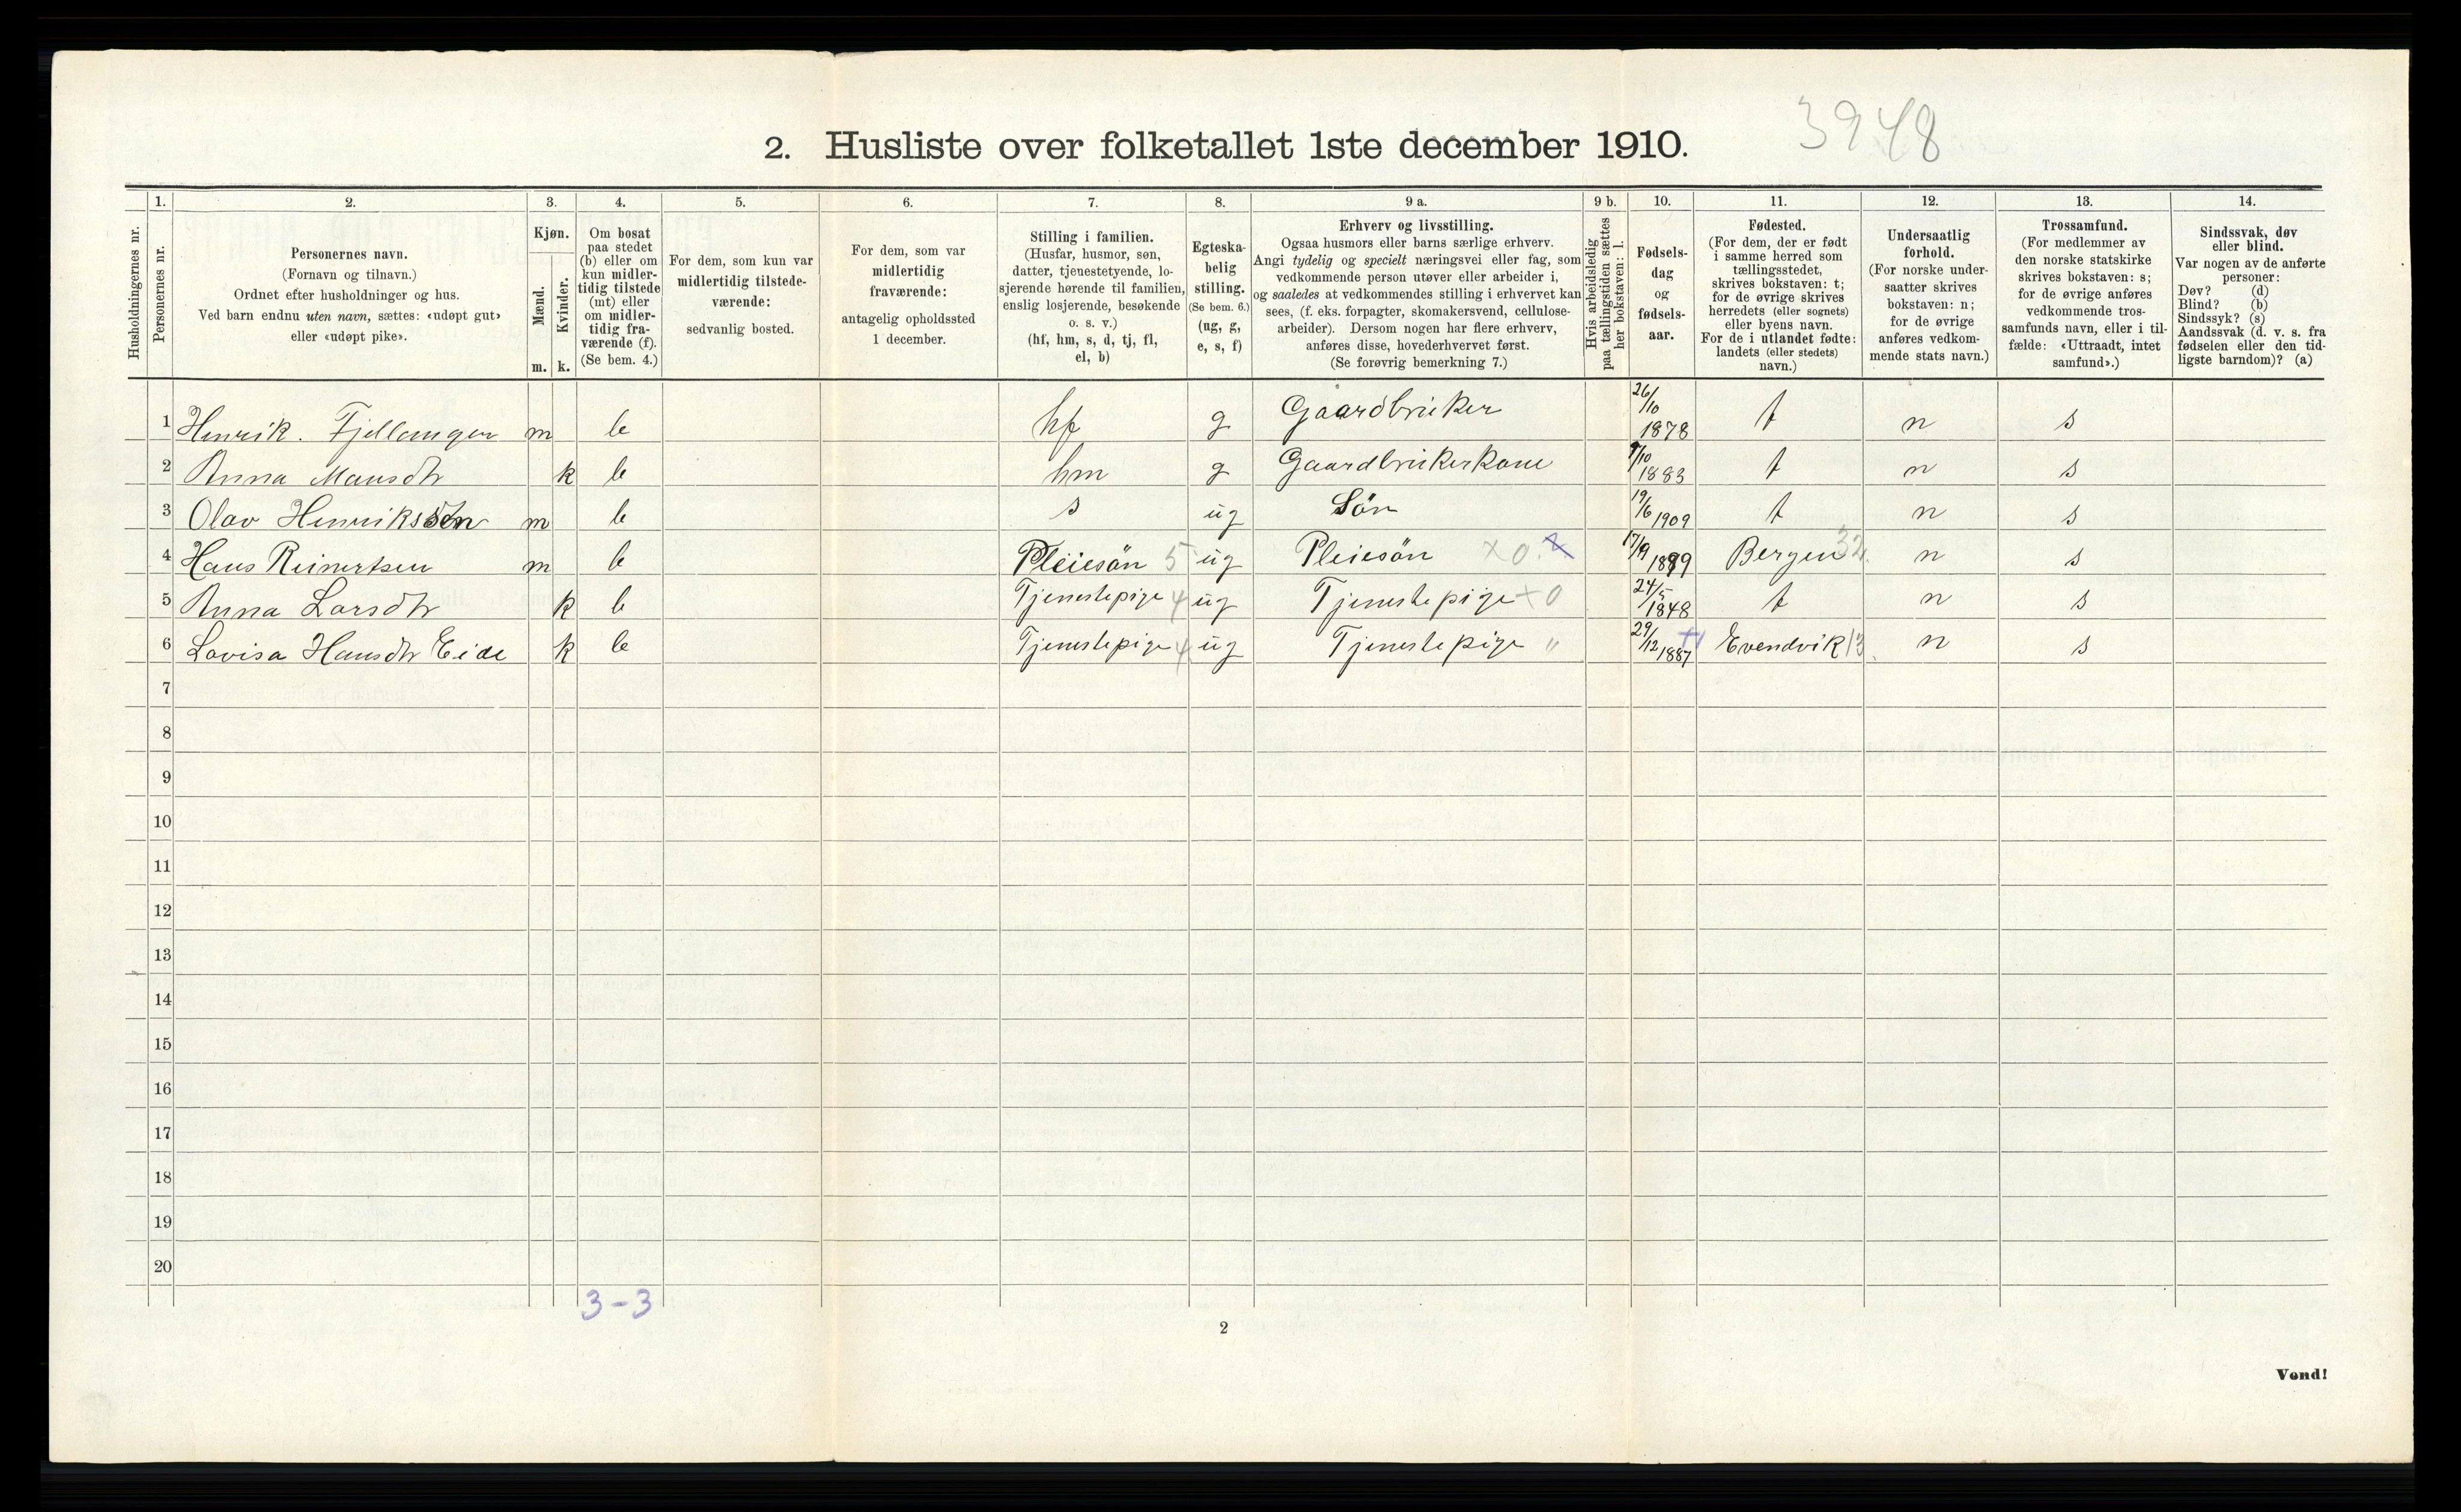 3948
2. Husliste over folketallet 1ste december 1910.
Husholdningernes nr.
1.
Personernes nr.
2.
Personernes navn.
(Fornavn og tilnavn.)
Ordnet efter husholdninger og hus.
Ved barn endnu uten navn, sættes: «udøpt gut»
eller «udøpt pike».
3.
Kjøn.
Mænd.
Kvinder.
m. k.
4.
Om bosat
paa stedet
(b) eller om
kun midler-
tidig tilstede
(mt) eller
om midler-
tidig fra-
værende (f).
(Se bem. 4.)
5.
For dem, som kun var
midlertidig tilstede-
værende:
sedvanlig bosted.
6.
For dem, som var
midlertidig
fraværende:
antagelig opholdssted
1 december.
7.
Stilling i familien.
(Husfar, husmor, søn,
datter, tjenestetyende, lo-
sjerende hørende til familien,
enslig losjerende, besøkende
o. s. v.)
(hf, hm, s, d, tj, fl,
el, b)
8.
Egteska-
belig
stilling.
(Se bem. 6.)
(ug, g,
e, s, f)
9 a.
Erhverv og livsstilling.
Ogsaa husmors eller barns særlige erhverv.
Angi tydelig og specielt næringsvei eller fag, som
vedkommende person utøver eller arbeider i,
og saaledes at vedkommendes stilling i erhvervet kan
sees, (f. eks. forpagter, skomakersvend, cellulose-
arbeider). Dersom nogen har flere erhverv,
anføres disse, hovederhvervet først.
(Se forøvrig bemerkning 7.)
9 b.
Hvis arbeidsledig
paa tællingstiden sættes
her bokstaven: l.
10.
Fødsels-
dag
og
fødsels-
aar.
11.
Fødested.
(For dem, der er født
i samme herred som
tællingsstedet,
skrives bokstaven: t;
for de øvrige skrives
herredets (eller sognets)
eller byens navn.
For de i utlandet fødte:
landets (eller stedets)
navn.)
12.
Undersaatlig
forhold.
(For norske under-
saatter skrives
bokstaven: n;
for de øvrige
anføres vedkom-
mende stats navn.)
13.
Trossamfund.
(For medlemmer av
den norske statskirke
skrives bokstaven: s;
for de øvrige anføres
vedkommende tros-
samfunds navn, eller i til-
fælde: «Uttraadt, intet
samfund».)
14.
Sindssvak, døv
eller blind.
Var nogen av de anførte
personer:
Døv? (d)
Blind? (b)
Sindssyk? (s)
Aandssvak (d. v. s. fra
fødselen eller den tid-
ligste barndom)? (a)
1 Henrik. Fjellanger m b hf g Gaardbruker 26/10 1878 t n s
2 Anna Mansdtr k b hm g Gaardbrukerkone 9/10 1883 t n s
3 Olav Henrikssen m b s ug Sön 19/6 1909 t n s
4 Hans Reinertsen m b Pleiesön 5 ug Pleiesön x 0. 17/9 1899 Bergen 32. n s
5 Anna Larsdtr k b Tjenestepige 4 ug Tjenestepige + 0 24/5 1848 t n s
6 Lovisa Hansdtr Eide k b Tjenestepige 4 ug Tjenestepige " 29/12 1887 Evendvik 13. n s
7
8
9
10
11
12
13
14
15
16
17
18
19
20
3-3
2
Vend!